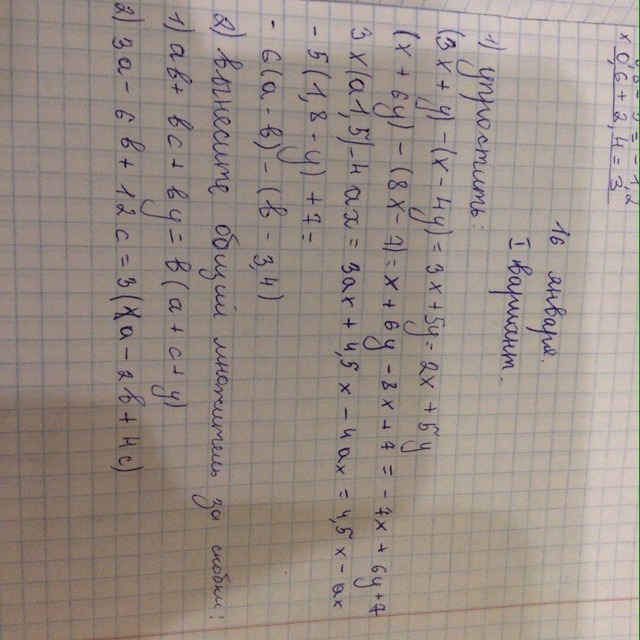 × 0,6 + 2,4 = 3
16 января.
I вариант.
1) упростить:
(3x + y) - (x - 4y) = 3x + 5y = 2x + 5y
(x + 6y) - (8x - 7) = x + 6y - 8x + 7 = - 7x + 6y + 7
3x(a 1,5) - 4ax = 3ax + 4,5x - 4ax = 4,5x - ax
- 5(1,8 - y) + 7 =
- 6(a - b) - (b - 3,4)
2) вынесите общий множитель за скобки:
1) ab + bc + by = b(a + c + y)
2) 3a - 6b + 12c = 3(a - 2b + 4c)